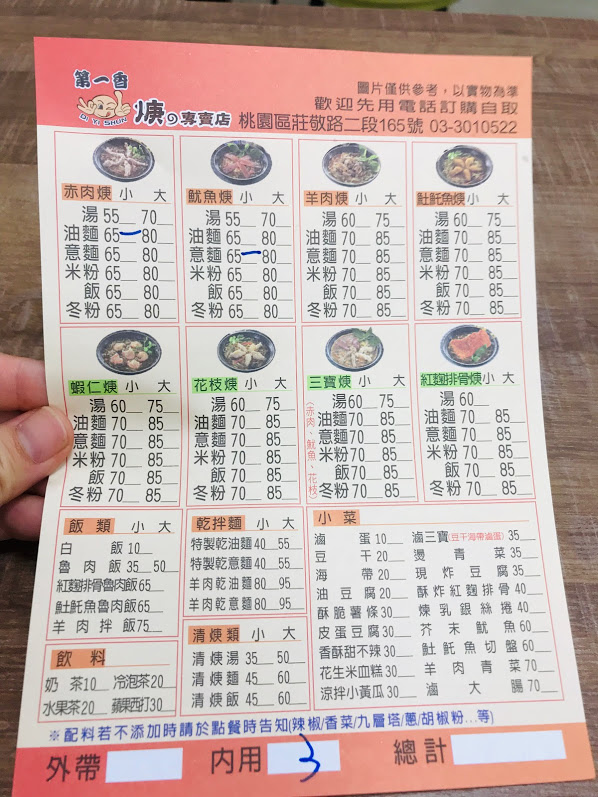 第一香
DI YI SHUN
焿の專賣店
圖片僅供參考，以實物為準
歡迎先用電話訂購自取
桃園區莊敬路二段165號 03-3010522
赤肉焿 小 大
湯 55 70
油麵 65 一 80
意麵 65 80
米粉 65 80
飯 65 80
冬粉 65 80
魷魚焿 小 大
湯 55 70
油麵 65 80
意麵 65 一 80
米粉 65 80
飯 65 80
冬粉 65 80
羊肉焿 小 大
湯 60 75
油麵 70 85
意麵 70 85
米粉 70 85
飯 70 85
冬粉 70 85
𩵚魠魚焿 小 大
湯 60 75
油麵 70 85
意麵 70 85
米粉 70 85
飯 70 85
冬粉 70 85
蝦仁焿 小 大
湯 60 75
油麵 70 85
意麵 70 85
米粉 70 85
飯 70 85
冬粉 70 85
花枝焿 小 大
湯 60 75
油麵 70 85
意麵 70 85
米粉 70 85
飯 70 85
冬粉 70 85
三寶焿 小 大
(赤肉、魷魚、花枝)
湯 60 75
油麵 70 85
意麵 70 85
米粉 70 85
飯 70 85
冬粉 70 85
紅麴排骨焿 小 大
湯 60 75
油麵 70 85
意麵 70 85
米粉 70 85
飯 70 85
冬粉 70 85
飯類 小 大
白飯 10
魯肉飯 35 50
紅麴排骨魯肉飯 65
魠魚魯肉飯 65
羊肉拌飯 75
飲料
奶茶 10 冷泡茶 20
水果茶 20 蘋果西打 30
乾拌麵 小 大
特製乾油麵 40 55
特製乾意麵 40 55
羊肉乾油麵 80 95
羊肉乾意麵 80 95
清焿類 小 大
清焿湯 35 50
清焿麵 45 60
清焿飯 45 60
小菜
滷蛋 10
豆干 20
海帶 20
油豆腐 20
酥脆薯條 30
皮蛋豆腐 30
香酥甜不辣 30
花生米血糕 30
涼拌小黃瓜 30
滷三寶(豆干海帶滷蛋) 35
燙青菜 35
現炸豆腐 35
酥炸紅麴排骨 40
煉乳銀絲捲 40
芥末魷魚 60
魠魚切盤 60
羊肉青菜 70
滷大腸 70
※配料若不添加時請於點餐時告知(辣椒/香菜/九層塔/蔥/胡椒粉...等)
外帶 內用 3 總計